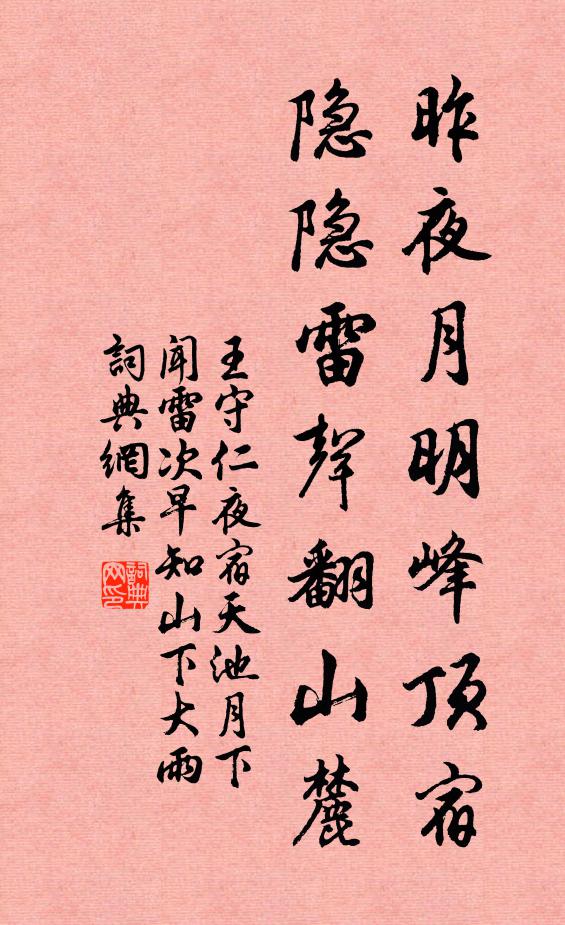 昨夜月明峰顶宿
隐隐雷聲翻山麓
王守仁夜宿天池月下
闻雷次早知山下大雨
詞典網集
詞典网印